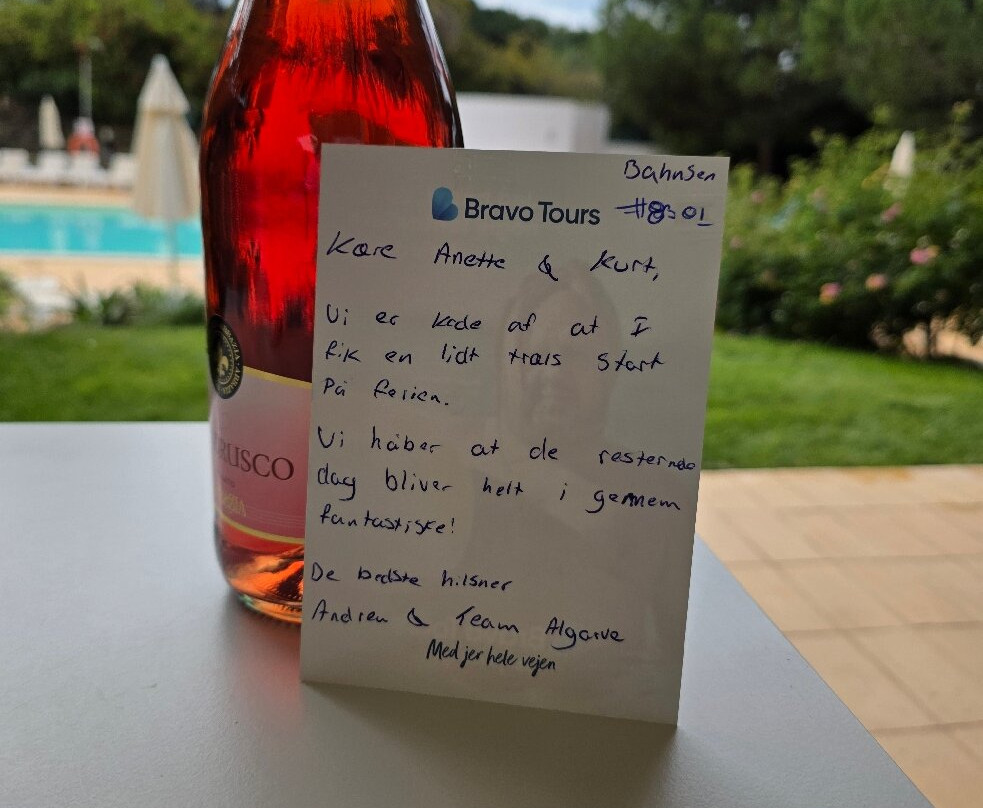 Bahnsen
#8301
Bravo Tours
Kære Anette & Kurt,
Vi er kede af at I
fik en lidt træls start
på ferien.
Vi håber at de resterende
dag bliver helt i gennem
fantastiske!
De bedste hilsner
Andrea & Team Algarve
Med jer hele vejen
RUSCO